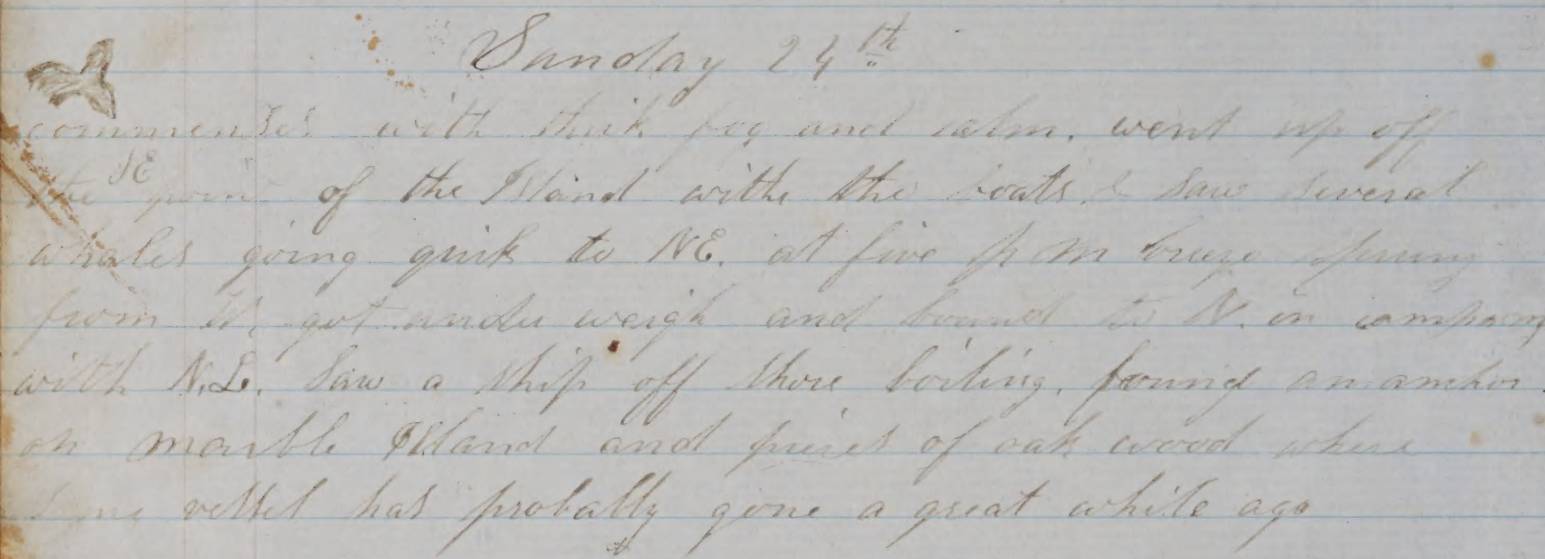 Sunday 24th
commenses with thick fog and calm. went up off
the SE point of the Island withe the boats & saw several
whales going quik to NE. at five p m breeze sprung
from W. got under weigh and bound to N. in company
with N.L. Saw a ship off shore boiling. found an anchor
on marble Island and pieces of oak wood where
some vessel has probally gone a great while ago